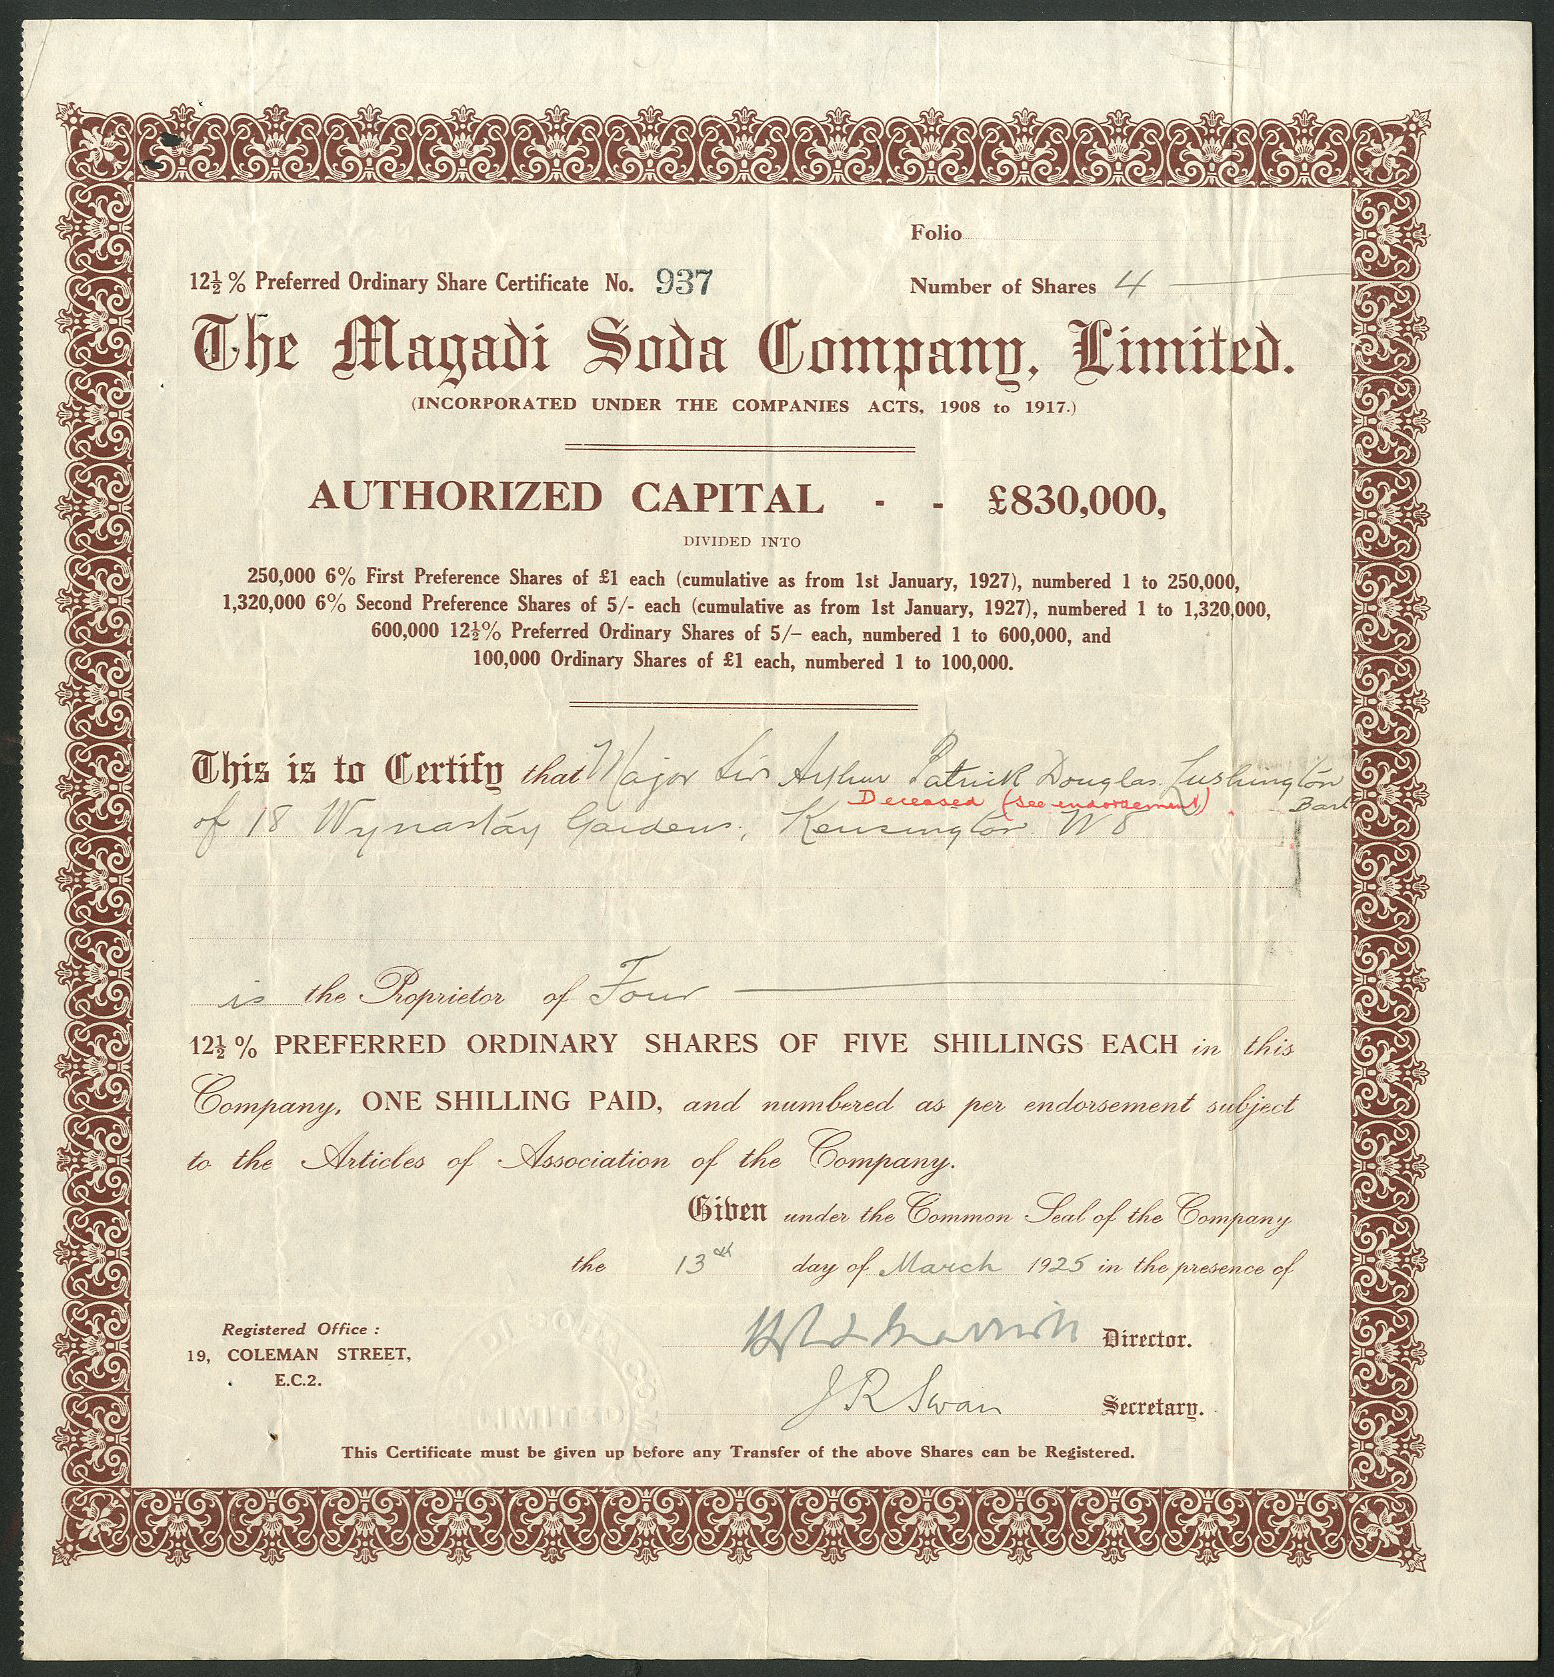 Folio
12½% Preferred Ordinary Share Certificate No. 937
Number of Shares 4
The Magadi Soda Company, Limited.
(INCORPORATED UNDER THE COMPANIES ACTS, 1908 to 1917.)
AUTHORIZED CAPITAL - - £830,000,
DIVIDED INTO
250,000 6% First Preference Shares of £1 each (cumulative as from 1st January, 1927), numbered 1 to 250,000,
1,320,000 6% Second Preference Shares of 5/- each (cumulative as from 1st January, 1927), numbered 1 to 1,320,000,
600,000 12½% Preferred Ordinary Shares of 5/– each, numbered 1 to 600,000, and
100,000 Ordinary Shares of £1 each, numbered 1 to 100,000.
This is to Certify that Major Sir Arthur Patrick Douglas Lushington
Deceased (see endorsement) Bart
of 18 Wynnstay Gardens, Kensington W8
is the Proprietor of Four
12½% PREFERRED ORDINARY SHARES OF FIVE SHILLINGS EACH in this
Company, ONE SHILLING PAID, and numbered as per endorsement subject
to the Articles of Association of the Company.
Given under the Common Seal of the Company
the 13th day of March 1925 in the presence of
Director.
Registered Office :
19, COLEMAN STREET,
E.C.2.
J R Swan Secretary.
LIMITED
This Certificate must be given up before any Transfer of the above Shares can be Registered.